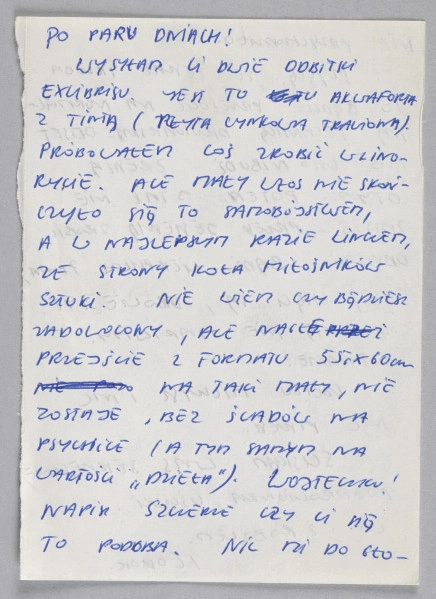 PO PARU DNIACH!
WYSŁAŁEM CI DWIE ODBITKI
EXLIBRISU. JEST TO AKWAFORTA
Z TINTĄ (PŁYTA CYNKOWA TRAWIONA).
PRÓBOWAŁEM COŚ ZROBIĆ W LINO-
RYCIE. ALE MAŁY WŁOS NIE SKOŃ-
CZYŁO SIĘ TO SAMOBÓJSTWEM,
A W NAJLEPSZYM RAZIE LINCZEM,
ZE STRONY KOŁA MIŁOŚNIKÓW
SZTUKI. NIE WIEM CZY BĘDZIESZ
ZADOWOLONY, ALE NAGŁE
PRZEJŚCIE Z FORMATU 55 X 60 cm
NA TAKI MAŁY, NIE
ZOSTAJE, BEZ ŚLADÓW NA
PSYCHICE (A TYM SAMYM NA
WARTOŚCI „DZIEŁA"). WOJTECZKU!
NAPISZ SZCZERZE CZY CI SIĘ
TO PODOBA. NIC MI DO GŁO-